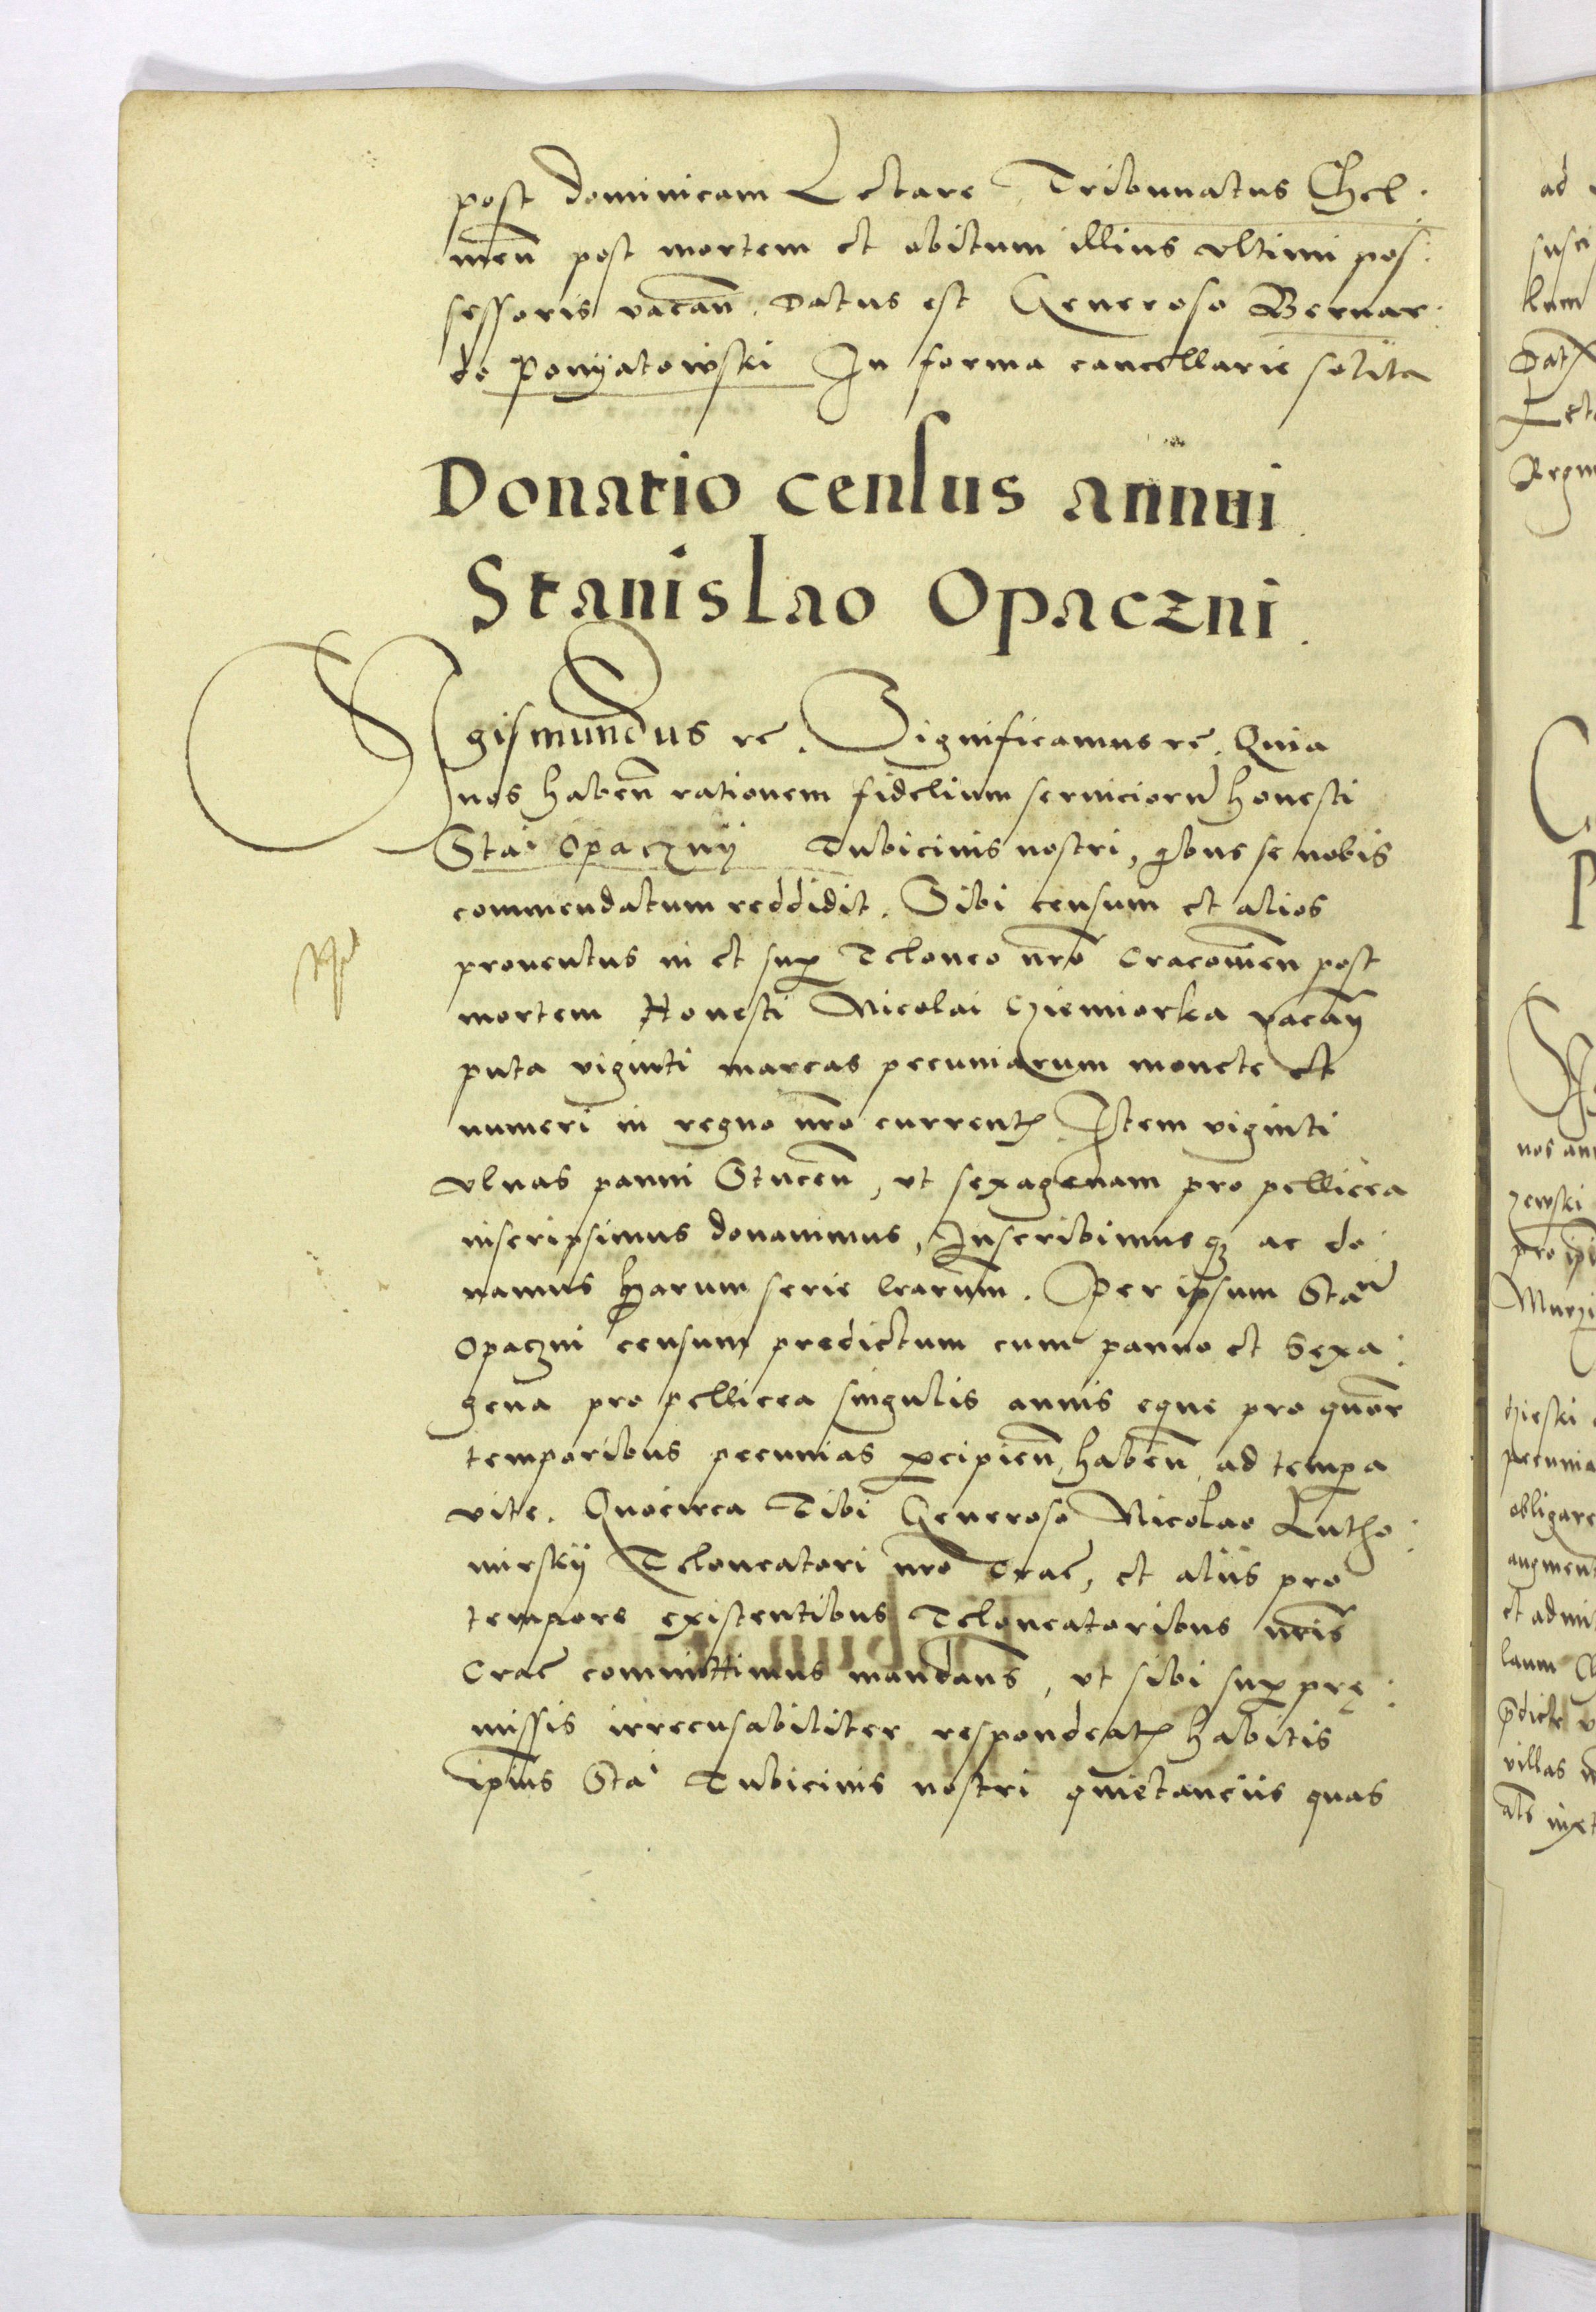 post dominicam Letare Tribunatus Chel.
meñ post mortem et obitum illius vltimi pos:
sessoris vacañ. Datus est Generoso Bernar:
do Ponyatowski In forma cancellarie solita
Donatio census annui
Stanislao Opaczni.
Sigismundus rc̃. Significamus rc̃. Quia
nos habeñ rationem fidelium seruiciorũ honesti
Stai Opacznÿ Tubicinis nostri, qbus se nobis
commendatum reddidit. Sibi censum et alios
prouentus in et sup Teloneo nr̃o Cracouieñ post
mortem Honesti Nicolai Cziemiorka vacañ
puta viginti marcas pecuniarum monete et
numeri in regno nr̃o currentꝭ Item viginti
vlnas panni Stuceñ, vt sexagenam pro pellicea
inscripsimus donauimus, Inscribimusqꝫ ac do
namus Harum serie lr̃arum. Per ipsum Staũ
Opaczni censum predictum cum panno et Sexa:
gena pro pellicea singulis annis eque pro quor̃
temporibus pecunias ꝑcipieñ, habeñ ad tempa
vite. Quocirca Tibi Generoso Nicolao Lutho:
mirskÿ Teloneatori nr̃o Crac̃, et aliis pro
tempore existentibus Teloneatoribus nr̃is
Crac̃ committimus mandañs, vt sibi sup prę:
missis irrecusabiliter respondeatꝭ habitis
ip̃ius Stai Tubicinis nostri quietanciis quas